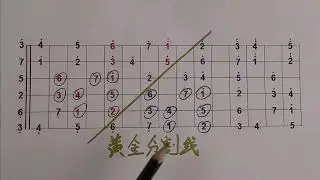 3 4 5 6 7 1 2 3 4 5
7 1 2 3 4 5 6 7 1 2
6 7 1 2 3 4 5
3 4 5 6 7 1 2 3
6 7 1 2 3 4 5 6 7 1
3 4 5 6 7 1 2 3 4 5
黄金分割线